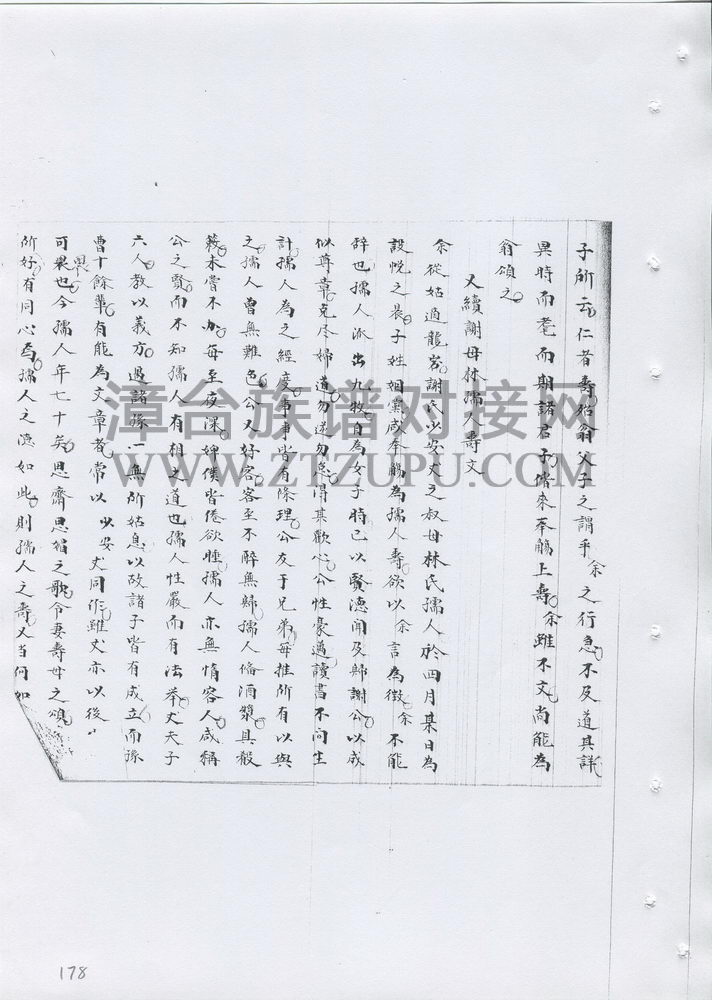 子所云仁者壽殆翁父子之謂乎余之行急不及道其詳
異時而耄而期諸君子偕來奉觴上壽余雖不文尚能為
翁頌之
又續謝母林孺人壽文
余從姑適龍岩謝氏以安丈之叔母林氏孺人於四月某日為
設帨之晨子姓姻黨咸奉觴為孺人壽欲以余言為徵余不能
辭也孺人派出九牧自為女子時已以賢德聞及歸謝公以成
似尊章克尽婦道勿逆勿怠得其歡心公性豪邁讀書不问生
計孺人為之經度事事皆有條理公友于兄弟每推所有以與
之孺人曾無難色公又好客客至不醉無歸孺人脩酒漿具殽
蔌未嘗不办每至夜深婢僕皆倦欲睡孺人亦無惰容人咸稱
公之賢而不知孺人有相之道也孺人性嚴而有法举丈夫子
六人教以義方遇諸孫一無所姑息以故諸子皆有成立而孫
曹十餘輩有能為文章者常以以安丈同作雖丈亦以後
畏
可畏也今孺人年七十矣思齋思媚之歌令妻壽母之頌
所好有同心焉孺人之德如此則孺人之壽又當何如
漳台族谱对接网
WWW.ZTZUPU.COM
178